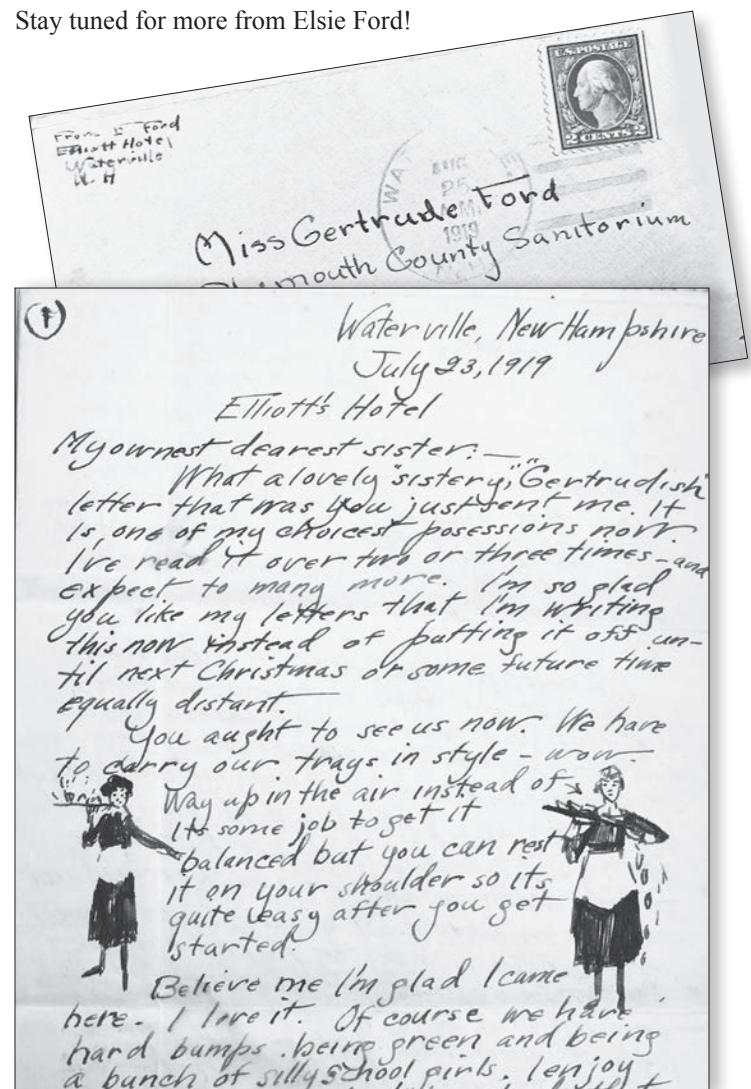 Stay tuned for more from Elsie Ford!
From E Ford
Elliott Hotel
Waterville
N. H
U.S. POSTAGE
2 CENTS 2
WAT
AUG
25
AM
1919
Miss Gertrude Ford
Plymouth County Sanitorium
1
Waterville, New Hampshire
July 23, 1919
Elliott's Hotel
My ownest dearest sister:—
What a lovely "sistery," "Gertrudish"
letter that was you just sent me. It
is one of my choicest posessions now.
I've read it over two or three times - and
expect to many more. I'm so glad
you like my letters that I'm writing
this now instead of putting it off un-
til next Christmas or some future time
equally distant.
You aught to see us now. We have
to carry our trays in style - wow.
Way up in the air instead of
Its some job to get it
balanced but you can rest
it on your shoulder so its
quite easy after you get
started.
Believe me I'm glad I came
here. I love it. Of course we have
hard bumps being green and being
a bunch of silly school girls. I enjoy